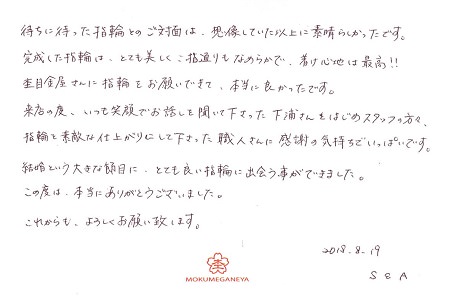 待ちに待った指輪とのご対面は、想像していた以上に素晴らしかったです。
完成した指輪は、とても美しく、指通りもなめらかで、着け心地は最高!!
杢目金屋さんに指輪をお願いできて、本当に良かったです。
来店の度、いつも笑顔でお話しを聞いて下さった下浦さんをはじめスタッフの方々、
指輪を素敵な仕上がりにして下さった職人さんに感謝の気持ちでいっぱいです。
結婚という大きな節目に、とても良い指輪に出会う事ができました。
この度は、本当にありがとうございました。
これからも、よろしくお願い致します。
2018.8.19
S & A
MOKUMEGANEYA